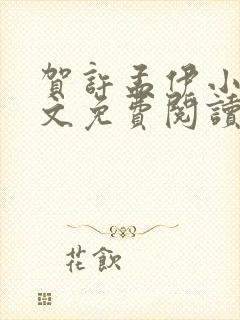 賀許孟伊小
文免費閱讀
花飲